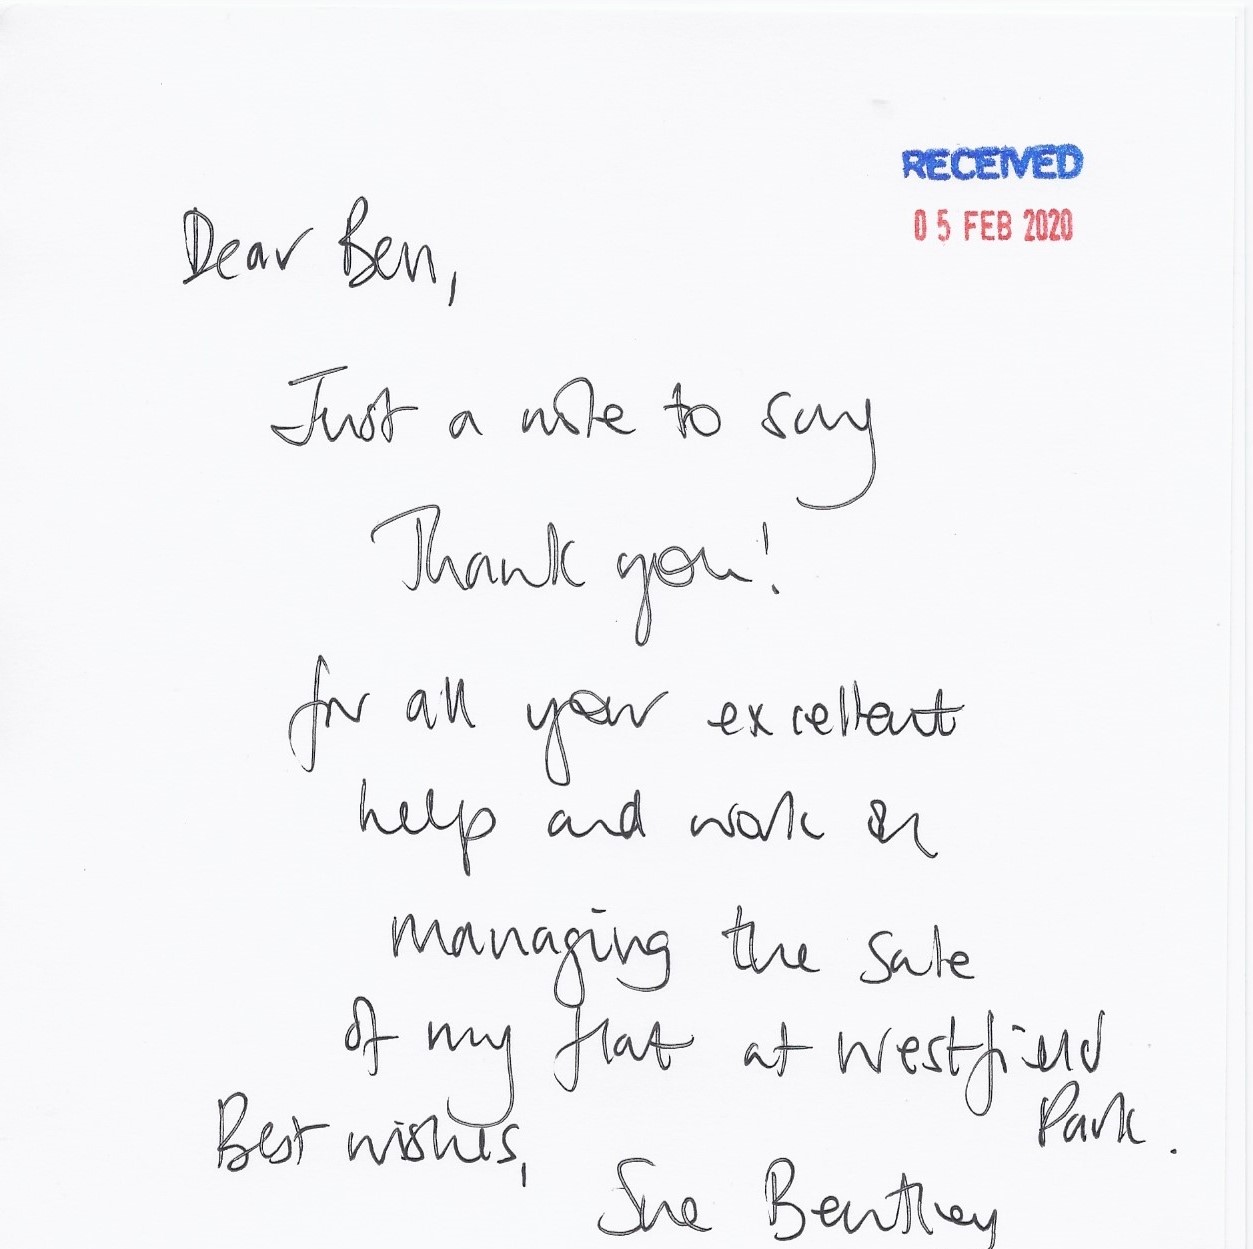 RECEIVED
05 FEB 2020
Dear Ben,
Just a note to say
Thank you!
for all your excellent
help and work in
managing the sale
of my flat at Westfield
Park.
Best wishes,
Sue Bentley